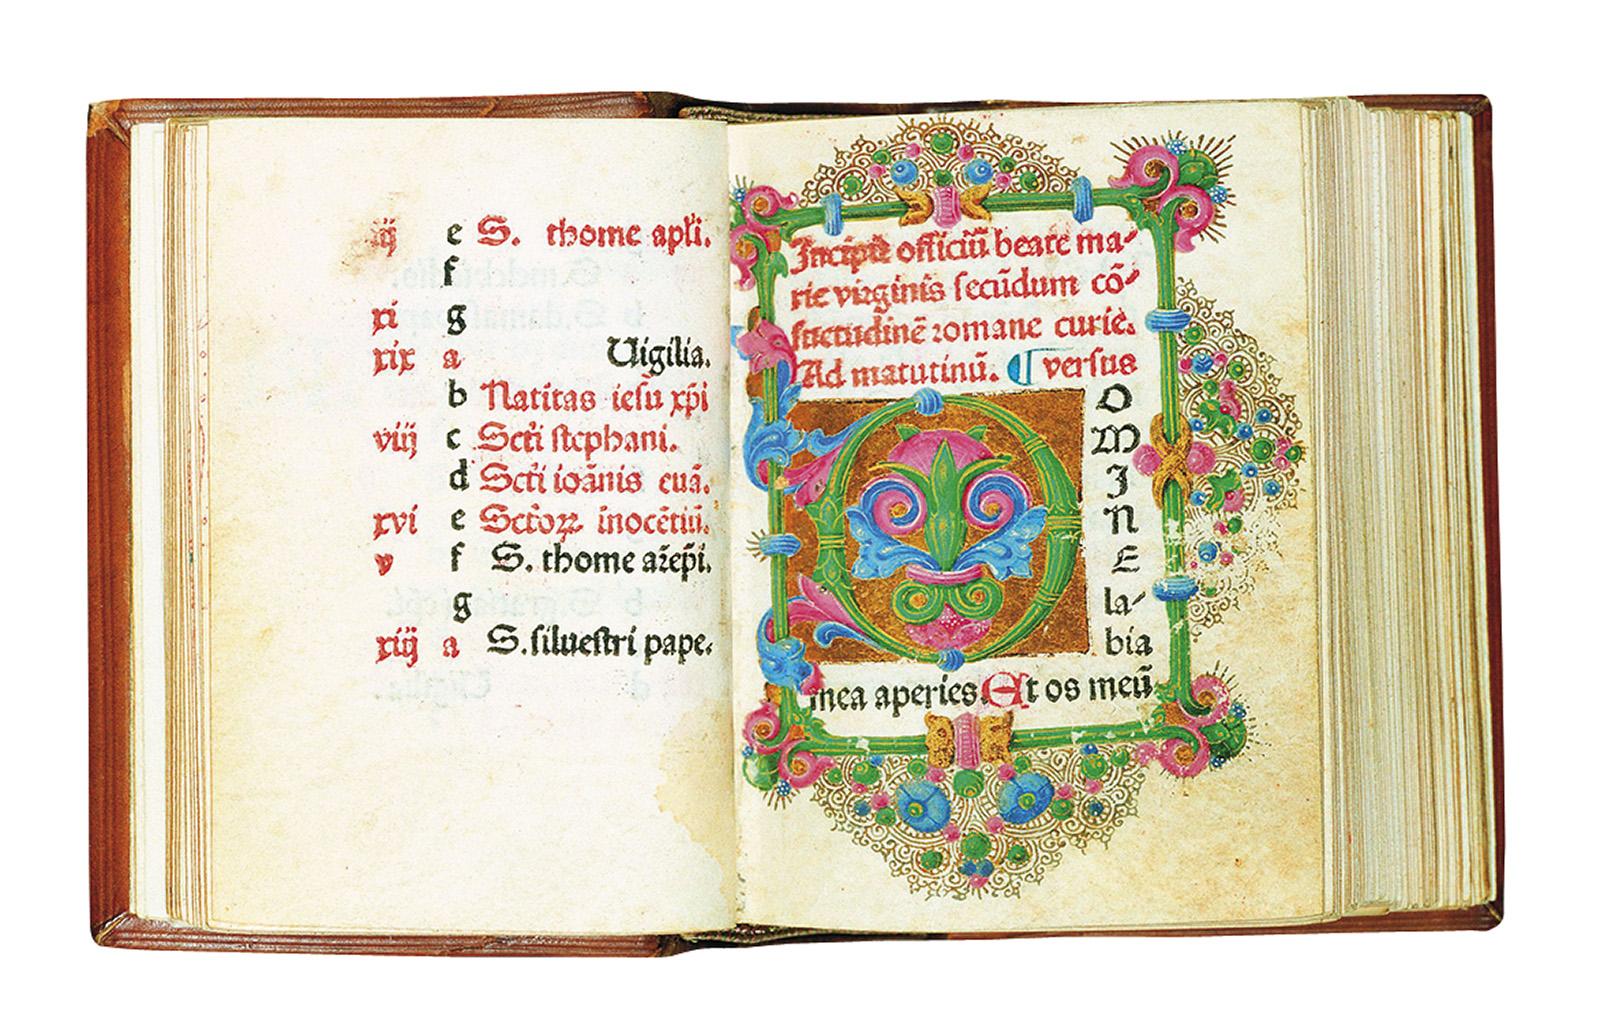 iij e S. thome apłi.
f
xi g
xix a Uigilia.
b Natitas iesu xp̄i
viij c Scti stephani.
d Scti ioānis euā.
xvi e Sctoꝝ inocētiū.
v f S. thome arēpi.
g
xiij a S. siluestri pape.
Incipit officiū beate ma-
rie virginis secūdum cō-
suetudinē romane curie.
Ad matutinū. ¶ versus
D
O
M
I
N
E
la-
bia
mea aperies. Et os meū